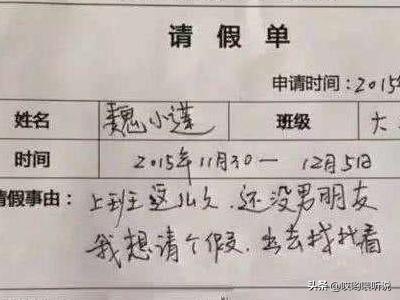 请假单
申请时间:2015年
姓名 魏小莲 班级 大
时间 2015年11月30一 12月5日
请假事由: 上班这么久,还没男朋友
我想请个假,出去找找看
头条 @哎哟喂听说